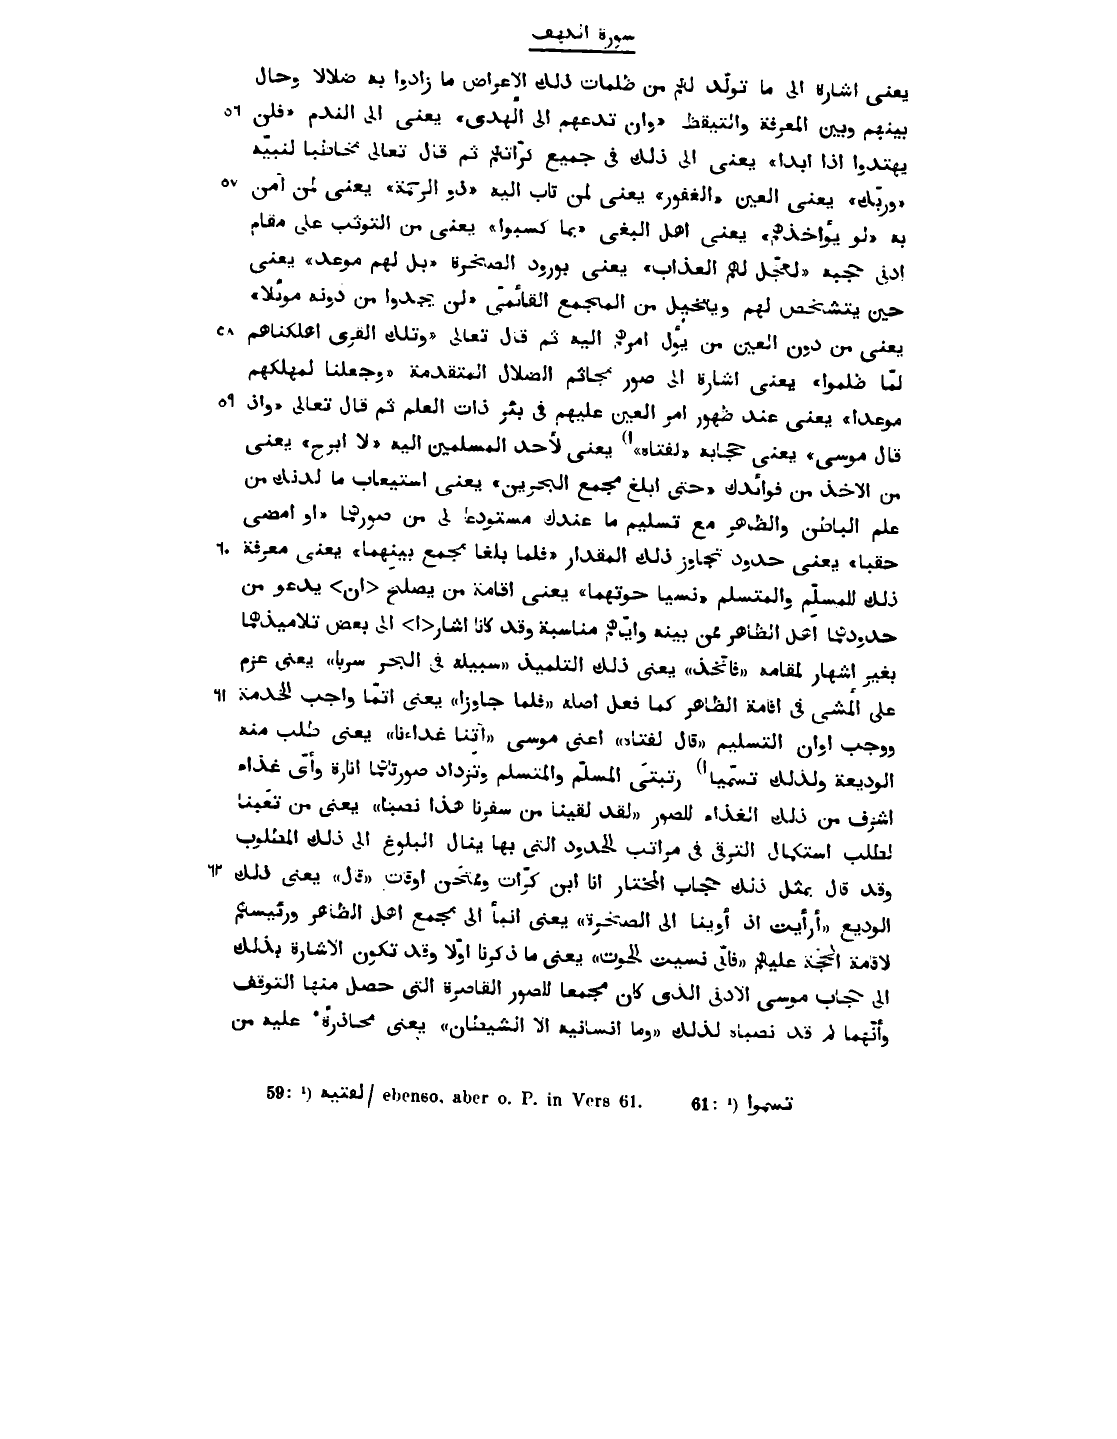 سورة الكهف
يعنى اشارة الى ما تولّد لهم من ظلمات ذلك الاعراض ما زادوا به ضلالا وحال
بينهم وبين المعرفة والتيقظ «وان تدعهم الى الهدى» يعنى الى الندم «فلن ٥٦
يهتدوا اذا ابدا» يعنى الى ذلك فى جميع كرّاتهم ثم قال تعالى مخاطبا لنبيّه
«وربّك» يعنى العين «الغفور» يعنى لمن تاب اليه «ذو الرحمة» يعنى لمن آمن ٥٧
به «لو يؤاخذهم» يعنى اهل البغى «بما كسبوا» يعنى من التوثب على مقام
ادنى حجبه «لعجّل لهم العذاب» يعنى بورود الصخرة «بل لهم موعد» يعنى
حين يتشخص لهم ويتخيل من المجمع القائمىّ «لن يجدوا من دونه موئلا»
يعنى من دون العين من يؤل امرهم اليه ثم قال تعالى «وتلك القرى اهلكناهم ٥٨
لمّا ظلموا» يعنى اشارة الى صور مجاثم الضلال المتقدمة «وجعلنا لمهلكهم
موعدا» يعنى عند ظهور امر العين عليهم فى بئر ذات العلم ثم قال تعالى «واذ ٥٩
قال موسى» يعنى حجابه «لفتاه»¹) يعنى لأحد المسلمين اليه «لا ابرح» يعنى
من الاخذ من فوائدك «حتى ابلغ مجمع البحرين» يعنى استيعاب ما لدنك من
علم الباطن والظاهر مع تسليم ما عندك مستودعا لى من صورتهما «او امضى
حقبا» يعنى حدود تجاوز ذلك المقدار «فلما بلغا مجمع بينهما» يعنى معرفة ٦٠
ذلك للمسلّم والمتسلم «نسيا حوتهما» يعنى اقامة من يصلح <ان> يدعو من
حدودهما اهل الظاهر ممن بينه وايّاهم مناسبة وقد كانا اشار<ا> الى بعض تلاميذهما
بغير اشهار لمقامه «فاتّخذ» يعنى ذلك التلميذ «سبيله فى البحر سربا» يعنى عزم
على المشى فى اقامة الظاهر كما فعل اصله «فلما جاوزا» يعنى اتمّا واجب الخدمة ٦١
ووجب اوان التسليم «قال لفتاه» اعنى موسى «آتنا غداءنا» يعنى طلب منه
الوديعة ولذلك تسمّيا¹) رتبتى المسلّم والمتسلم وتزداد صورتاهما انارة وأىّ غذاء
اشرف من ذلك الغذاء للصور «لقد لقينا من سفرنا هذا نصبا» يعنى من تعبنا
لطلب استكمال الترقى فى مراتب الحدود التى بها ينال البلوغ الى ذلك المطلوب
وقد قال بمثل ذلك حجاب المختار انا ابن كرّات وممتحن اوقات «قال» يعنى ذلك ٦٢
الوديع «أرأيت اذ أوينا الى الصخرة» يعنى انبأ الى مجمع اهل الظاهر ورئيسهم
لاقامة الحجّة عليهم «فانّى نسيت الحوت» يعنى ما ذكرنا اوّلا وقد تكون الاشارة بذلك
الى حجاب موسى الادنى الذى كان مجمعا للصور القاصرة التى حصل منها التوقف
وأنّهما لم قد نصباه لذلك «وما انسانيه الا الشيطان» يعنى محاذرة عليه من
59: ¹) لفتيه / ebenso, aber o. P. in Vers 61. 61: ¹) تسموا